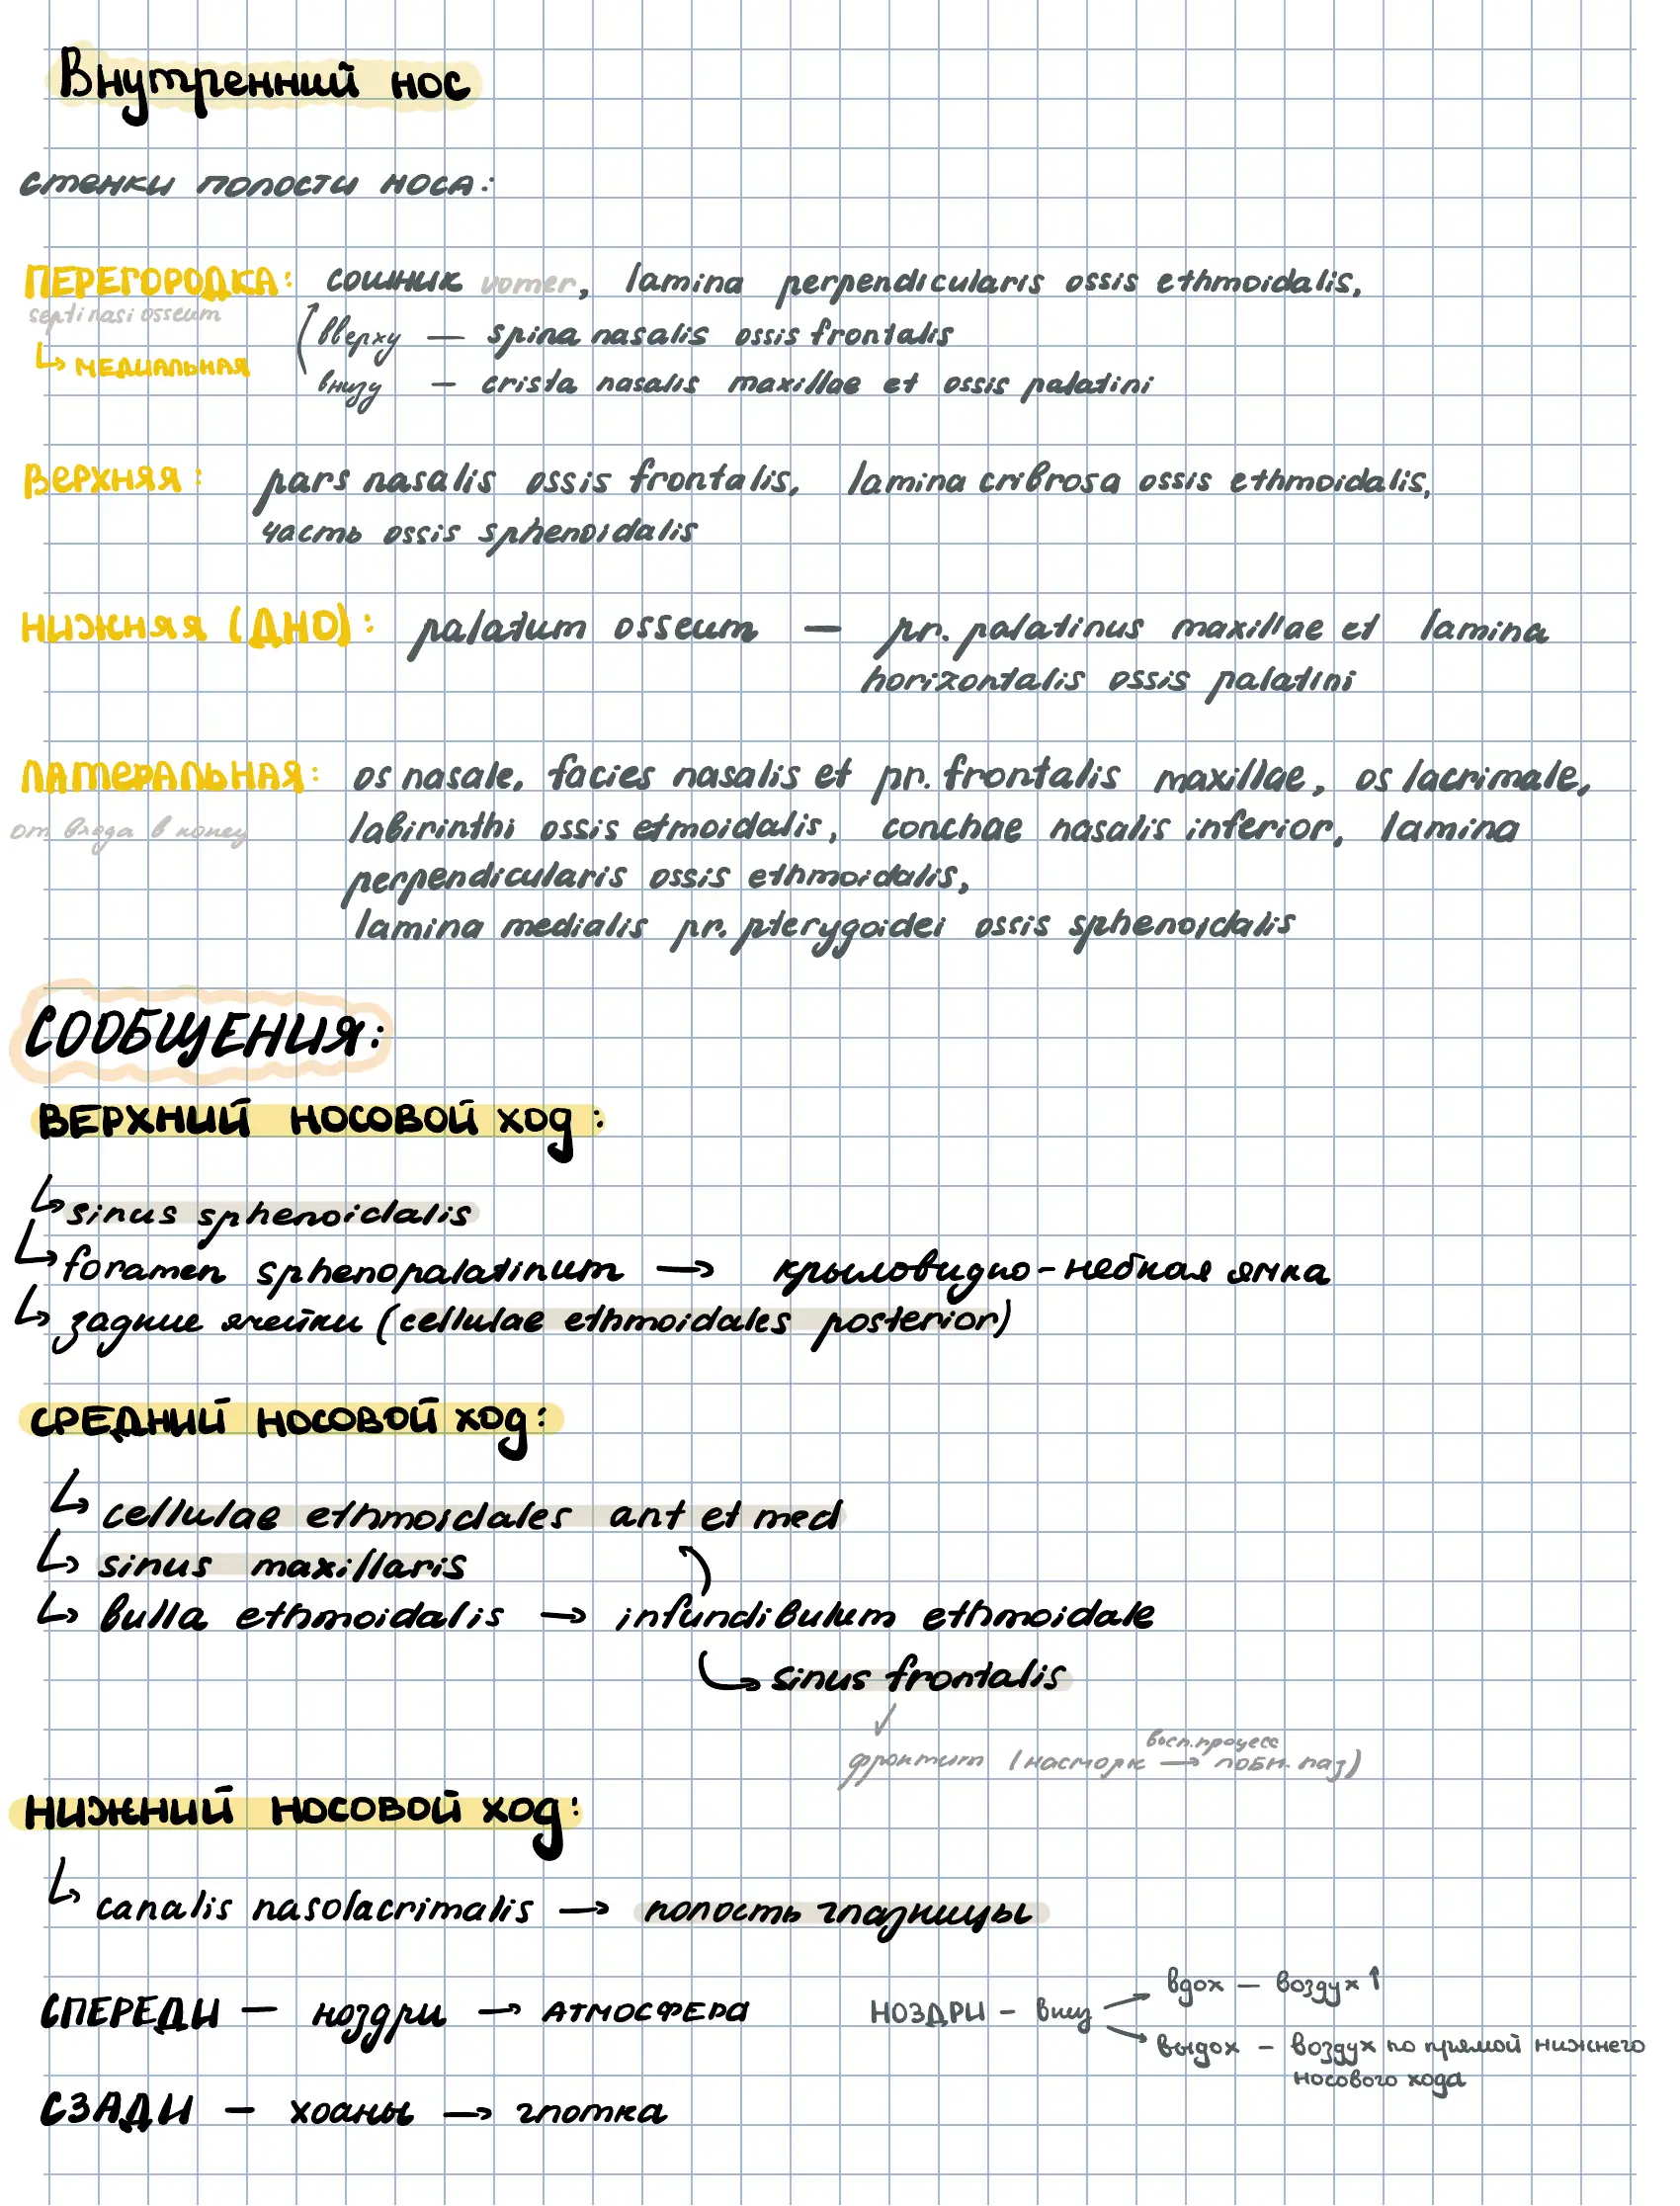 Внутренний нос
стенки полости носа:
ПЕРЕГОРОДКА: сошник vomer, lamina perpendicularis ossis ethmoidalis,
septi nasi osseum
вверху — spina nasalis ossis frontalis
↳ МЕДИАЛЬНАЯ
внизу — crista nasalis maxillae et ossis palatini
ВЕРХНЯЯ: pars nasalis ossis frontalis, lamina cribrosa ossis ethmoidalis,
часть ossis sphenoidalis
НИЖНЯЯ (ДНО): palatum osseum — pr. palatinus maxillae et lamina
horizontalis ossis palatini
ЛАТЕРАЛЬНАЯ: os nasale, facies nasalis et pr. frontalis maxillae, os lacrimale,
от входа в конец
labirinthi ossis etmoidalis, conchae nasalis inferior, lamina
perpendicularis ossis ethmoidalis,
lamina medialis pr. pterygoidei ossis sphenoidalis
СООБЩЕНИЯ:
ВЕРХНИЙ НОСОВОЙ ХОД:
↳ sinus sphenoidalis
↳ foramen sphenopalatinum → крыловидно-небная ямка
↳ задние ячейки (cellulae ethmoidales posterior)
СРЕДНИЙ НОСОВОЙ ХОД:
↳ cellulae ethmoidales ant et med
↳ sinus maxillaris
↳ bulla ethmoidalis → infundibulum ethmoidale
↳ sinus frontalis
восп. процесс
фронтит (насморк → лобн. паз)
НИЖНИЙ НОСОВОЙ ХОД:
↳ canalis nasolacrimalis → полость глазницы
вдох — воздух ↑
СПЕРЕДИ — ноздри → АТМОСФЕРА НОЗДРИ — вниз
выдох — воздух по прямой нижнего
носового хода
СЗАДИ — хоаны → глотка